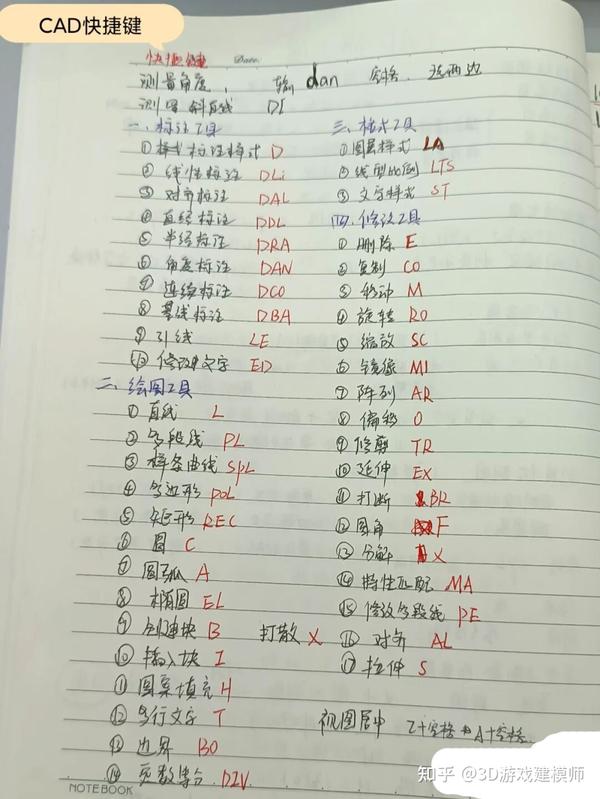 CAD快捷键
快捷键 Date.
测量角度, 输dan 空格. 选两边
测量斜直线 DI
一、标注工具
①样式标注样式 D
②线性标注 DLi
③对齐标注 DAL
④直径标注 DDL
⑤半径标注 DRA
⑥角度标注 DAN
⑦连续标注 DCO
⑧基线标注 DBA
⑨引线 LE
⑩修改文字 ED
二、绘图工具
①直线 L
②多段线 PL
③样条曲线 SPL
④多边形 POL
⑤矩形 REC
⑥圆 C
⑦圆弧 A
⑧椭圆 EL
⑨创建块 B 打散 X
⑩插入块 I
⑪图案填充 H
⑫多行文字 T
⑬边界 BO
⑭定数等分 DIV
三、格式工具
①图层样式 LA
②线型比例 LTS
③文字样式 ST
四、修改工具
①删除 E
②复制 CO
③移动 M
④旋转 RO
⑤缩放 SC
⑥镜像 MI
⑦阵列 AR
⑧偏移 O
⑨修剪 TR
⑩延伸 EX
⑪打断 BR
⑫圆角 F
⑬分解 X
⑭特性匹配 MA
⑮修改多段线 PE
⑯对齐 AL
⑰拉伸 S
视图居中 Z+空格 A+空格
NOTEBOOK
知乎 @3D游戏建模师